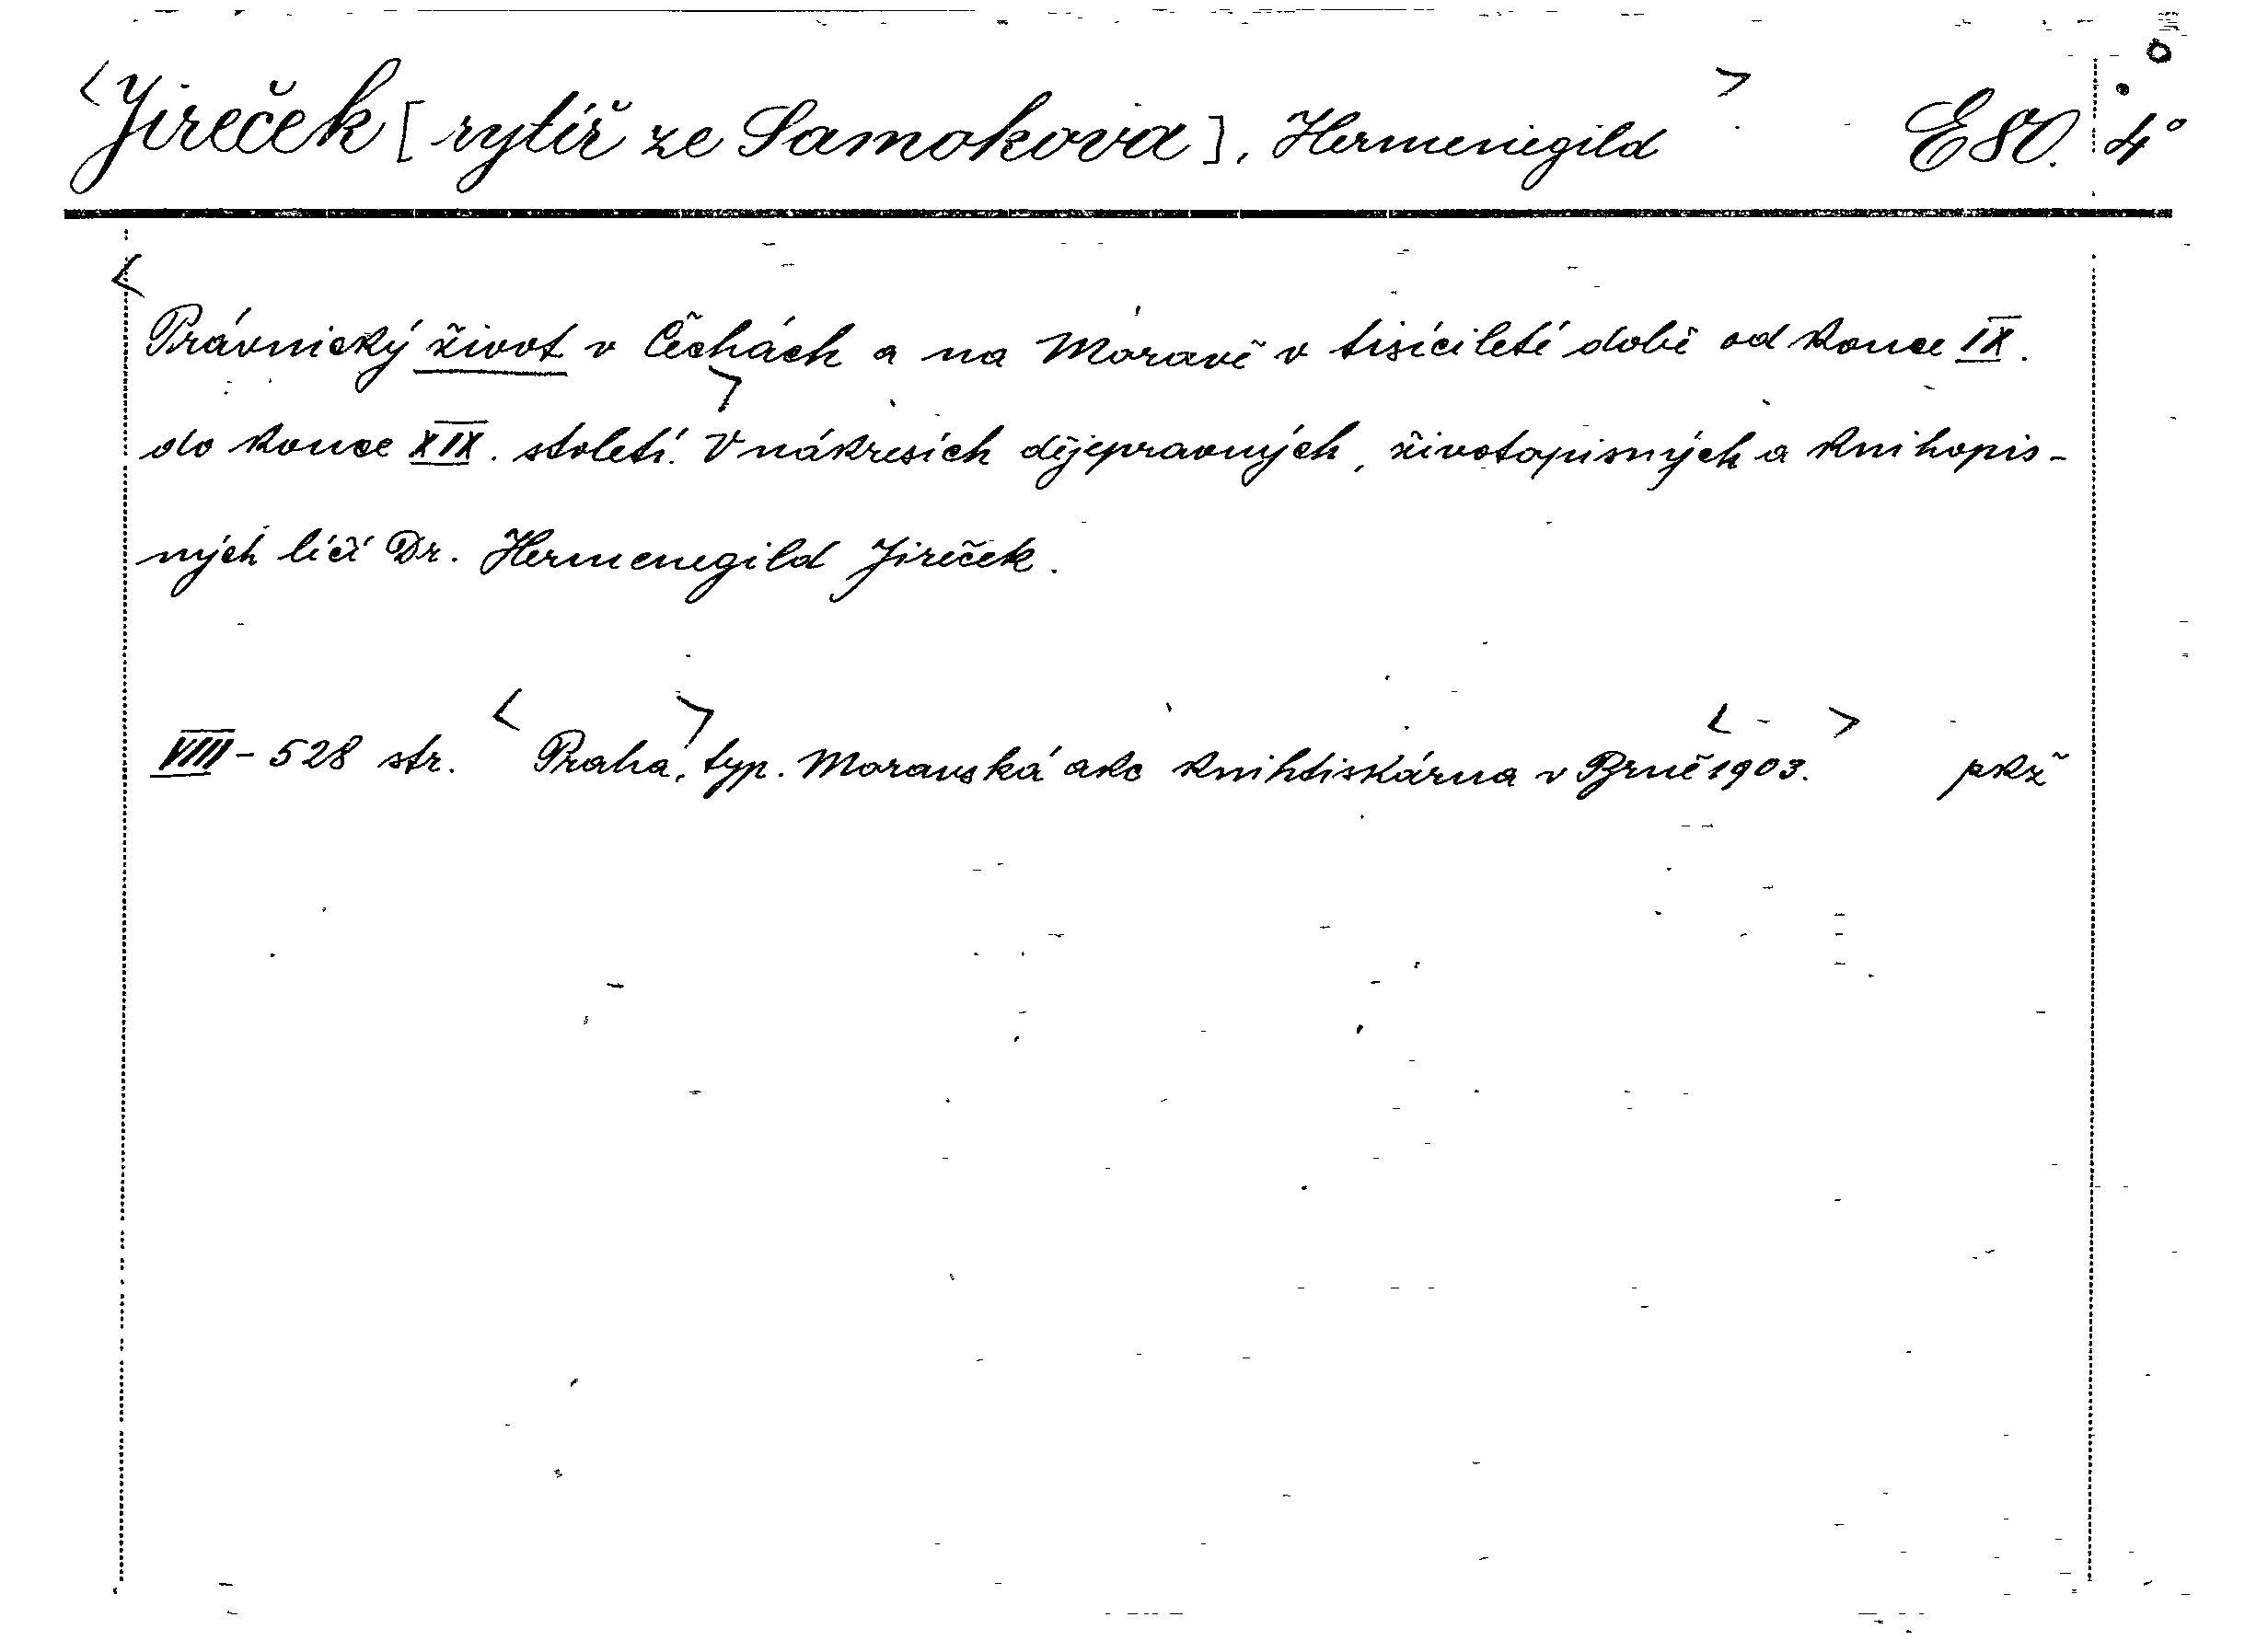 <Jireček [rytíř ze Samokova], Hermenegild> E 80. 4°
<Právnický život v Čechách a na Moravě v tisíciletí době od konce IX.
do konce XIX. století.> V nákresích dějepravných, životopisných a knihopis-
ných líčí Dr. Hermenegild Jireček.
VIII - 528 str. <Praha,> typ. Moravská akc knihtiskárna v Brně <1903.> pkž